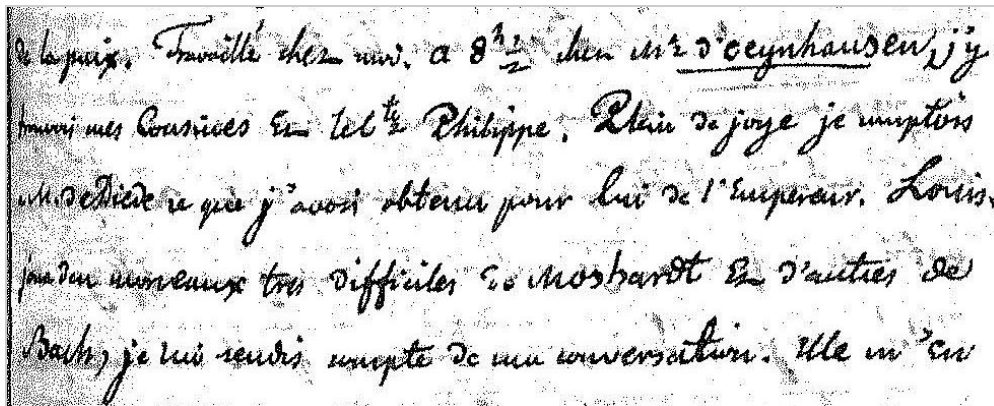 de la paix. Travaillé chez moi. a 8h ½ chez Me d'oeynhausen, j'y
trouvai mes Cousines et Philippe. Plein de joye je comptois
M. de Diede ce que j'avois obtenu pour lui de l'Empereur. Louise
joua des morceaux tres difficiles de Moshardt et d'autres de
Bach, je lui rendis compte de ma conversation. Elle m'en